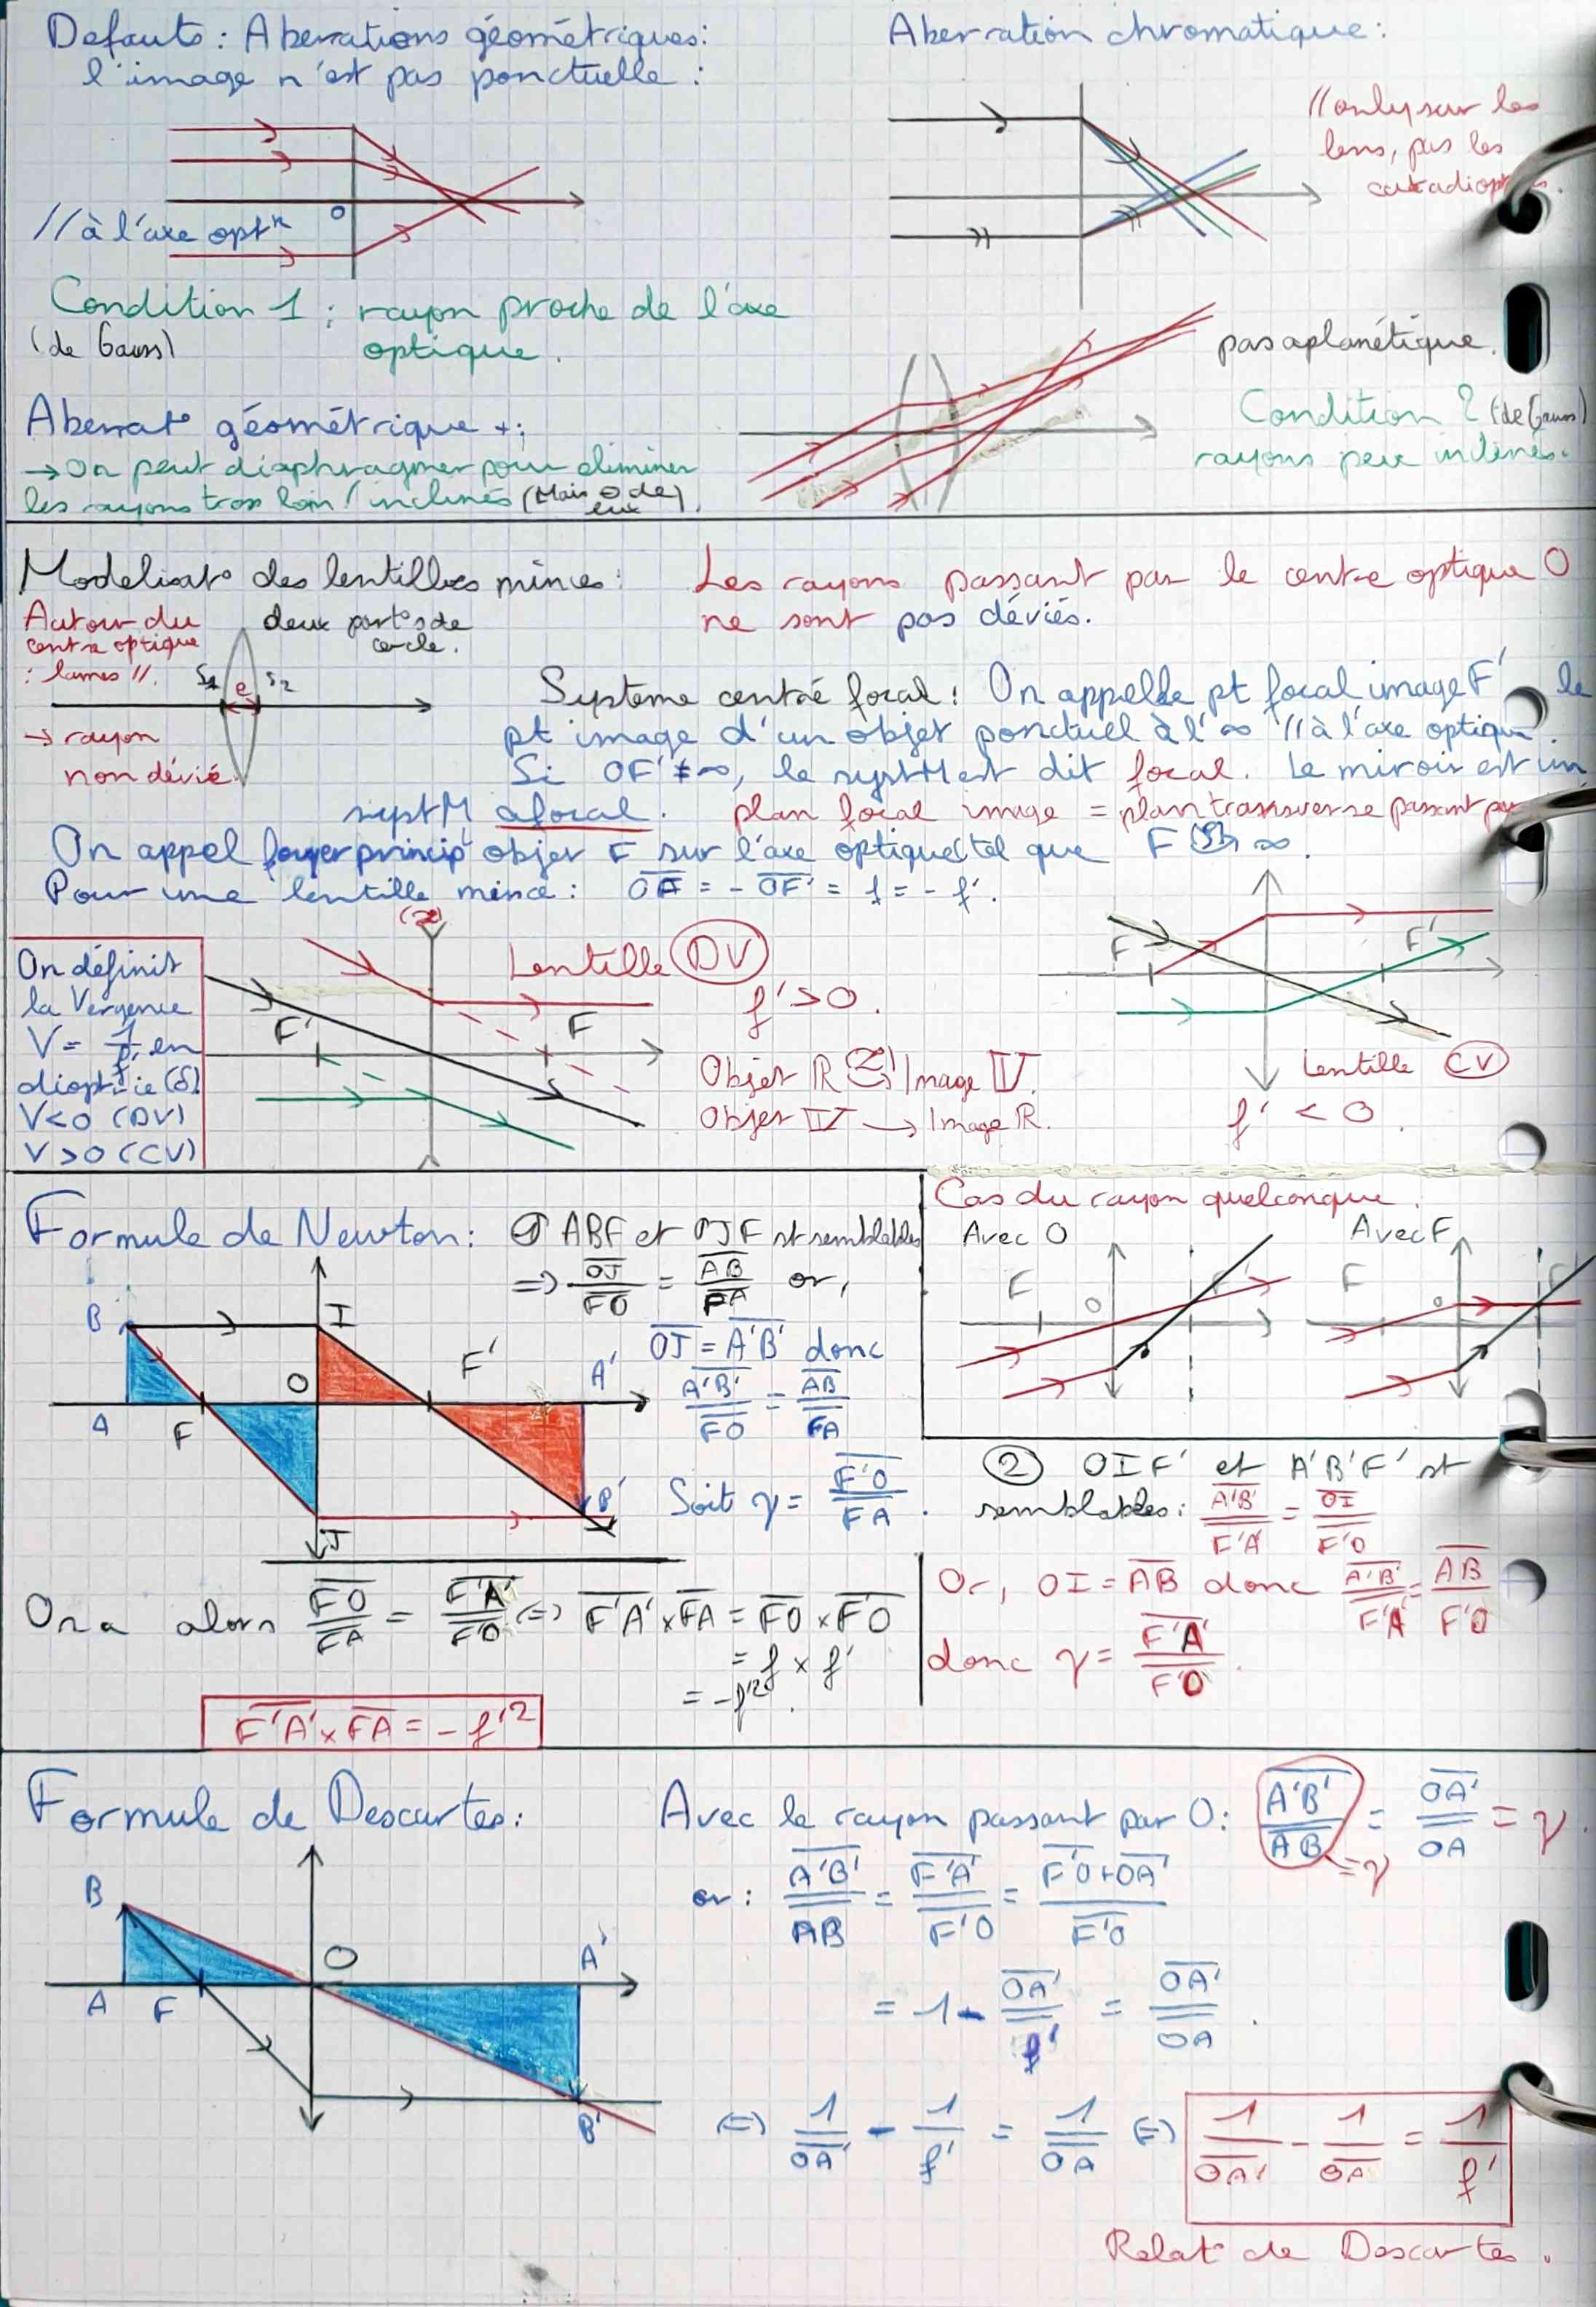 Defauts : Aberrations géométriques :
l'image n'est pas ponctuelle :
// à l'axe opt^n
O
Condition 1 : rayon proche de l'axe
(de Gauss) optique.
Aberrat° géométrique + :
→ On peut diaphragmer pour eliminer
les rayons trop loin / inclinés (Mais ⊖ de
eux).
Aberration chromatique :
// only sur les
lens, pas les
pas aplanétique.
Condition 2 (de Gauss)
rayons peu inclinés.
Modelisat° des lentilles minces :
Les rayons passant par le centre optique O
ne sont pas déviés.
Autour du
centre optique
: lames //.
deux port°s de
cercle.
S1 e S2
→ rayon
non dévié.
Systeme centré focal : On appelle pt focal image F' le
pt image d'un objet ponctuel à l'∞ // à l'axe optique.
Si OF' ≠ ∞, le systM est dit focal. Le miroir est un
systM afocal. plan focal image = plan transverse passant par
On appel foyer princip^l objet F sur l'axe optique tel que F ∞.
Pour une lentille mince : OF = - OF' = f = - f'.
On définit
la Vergence
V = 1/f' en
dioptrie (δ)
V<0 (DV)
V>0 (CV)
F' F
Lentille DV
f' > 0.
Objet R → Image V.
Objet V → Image R.
F F'
Lentille CV
f' < 0.
Formule de Newton : ① ABF et OJF st semblables
=> OJ/FO = AB/FA or,
OJ = A'B' donc
A'B'/FO = AB/FA
Soit γ = F'O/FA.
B I
A F O F' A'
J B'
Cas du rayon quelconque.
Avec O Avec F
F F' F F'
O o
② OIF' et A'B'F' st
semblables : A'B'/F'A' = OI/F'O
Or, OI = AB donc A'B'/F'A' = AB/F'O
donc γ = F'A'/F'O.
On a alors FO/FA = F'A'/F'O (=) F'A' × FA = FO × F'O
= f × f'
= -f'².
F'A' × FA = - f'²
Formule de Descartes :
B
A F O A'
B'
Avec le rayon passant par O : A'B'/AB = OA'/OA = γ.
=γ
or : A'B'/AB = F'A'/F'O = F'O+OA'/F'O
= 1 - OA'/f' = OA'/OA.
(=) 1/OA' - 1/f' = 1/OA (=) 1/OA' - 1/OA = 1/f'
Relat° de Descartes.